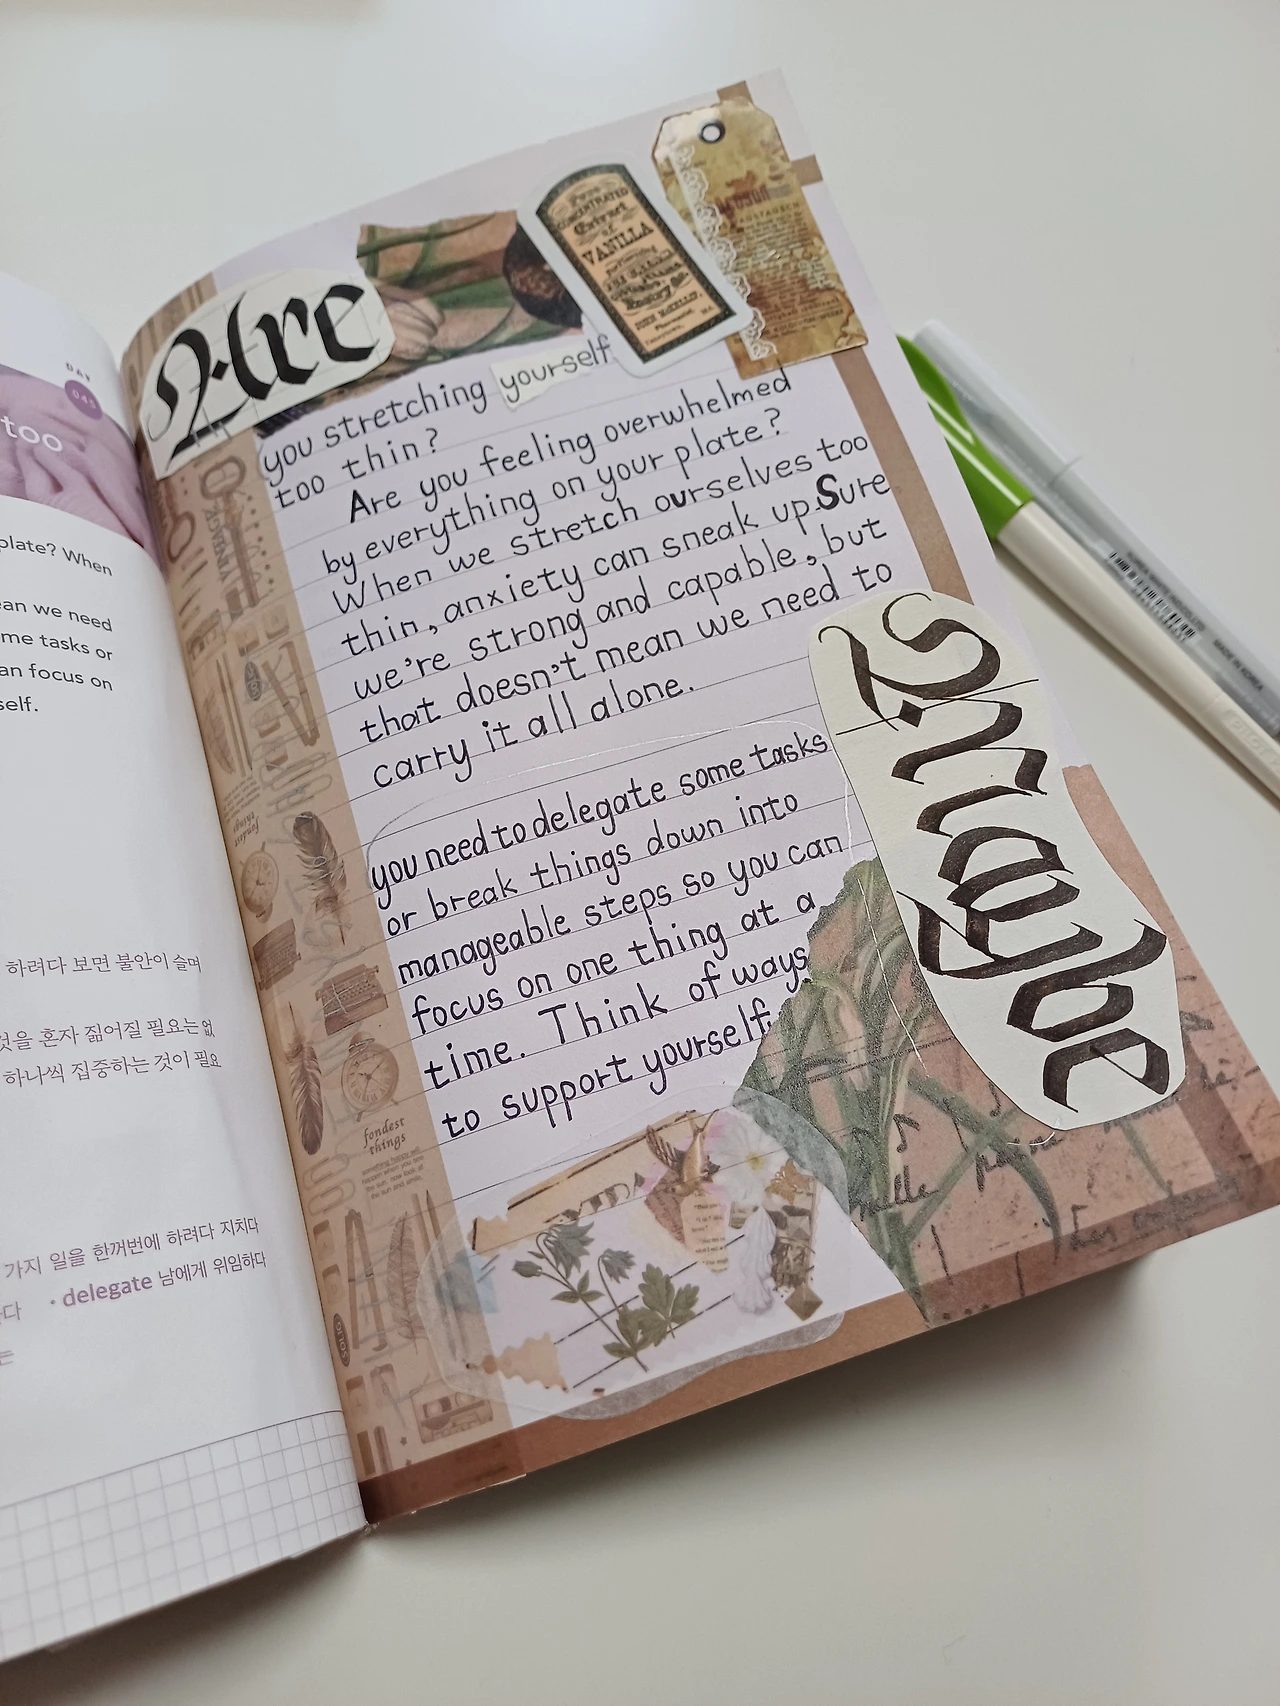 DAY
045
too
plate? When
ean we need
me tasks or
an focus on
self.
하려다 보면 불안이 슬며
것을 혼자 짊어질 필요는 없
하나씩 집중하는 것이 필요
가지 일을 한꺼번에 하려다 지치다
• delegate 남에게 위임하다
는
Are
you stretching yourself
too thin?
Are you feeling overwhelmed
by everything on your plate?
When we stretch ourselves too
thin, anxiety can sneak up. Sure
we're strong and capable, but
that doesn't mean we need to
carry it all alone.
Maybe
you need to delegate some tasks
or break things down into
manageable steps so you can
focus on one thing at a
time. Think of ways
to support yourself.
CONCENTRATED
Extract
of
VANILLA
AUSTAUSCH
fondest
things
MADE IN KOREA